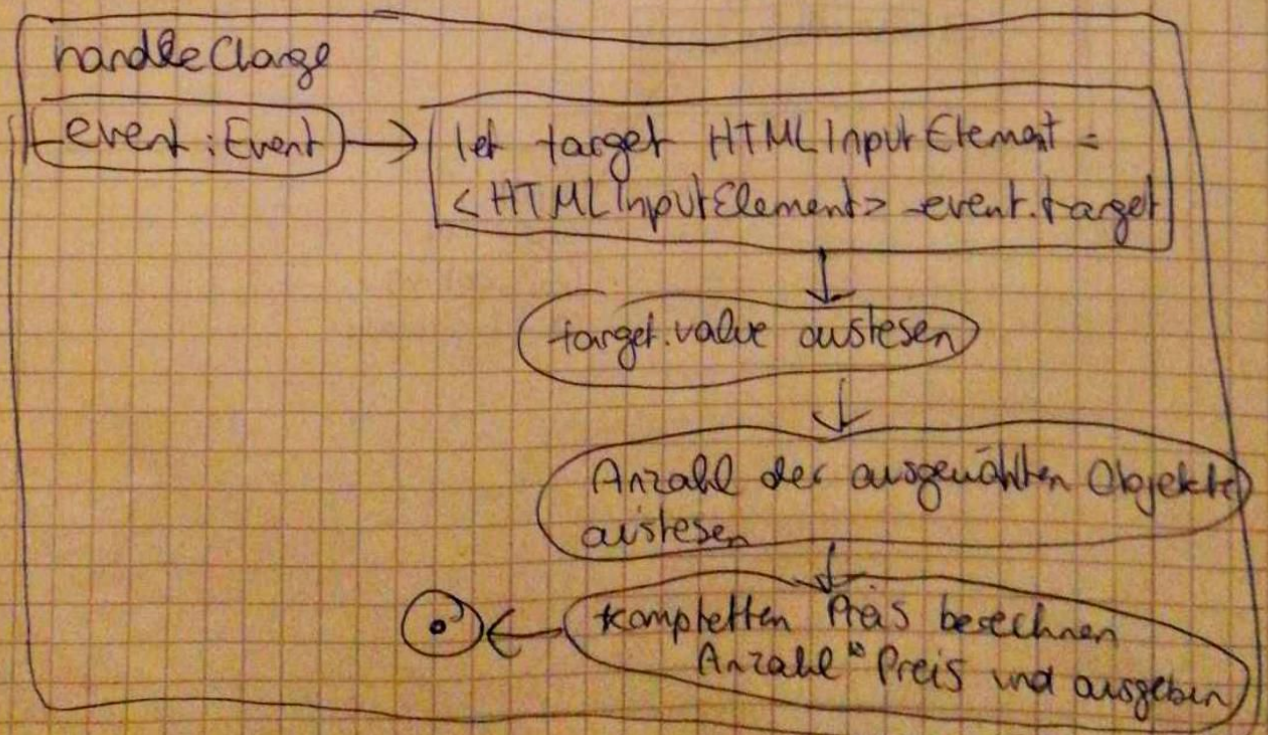 handleChange
_event : Event
let target HTMLInputElement =
<HTMLInputElement> _event.target
target.value auslesen
Anzahl der ausgewählten Objekte
auslesen
kompletten Preis berechnen
Anzahl * Preis und ausgeben